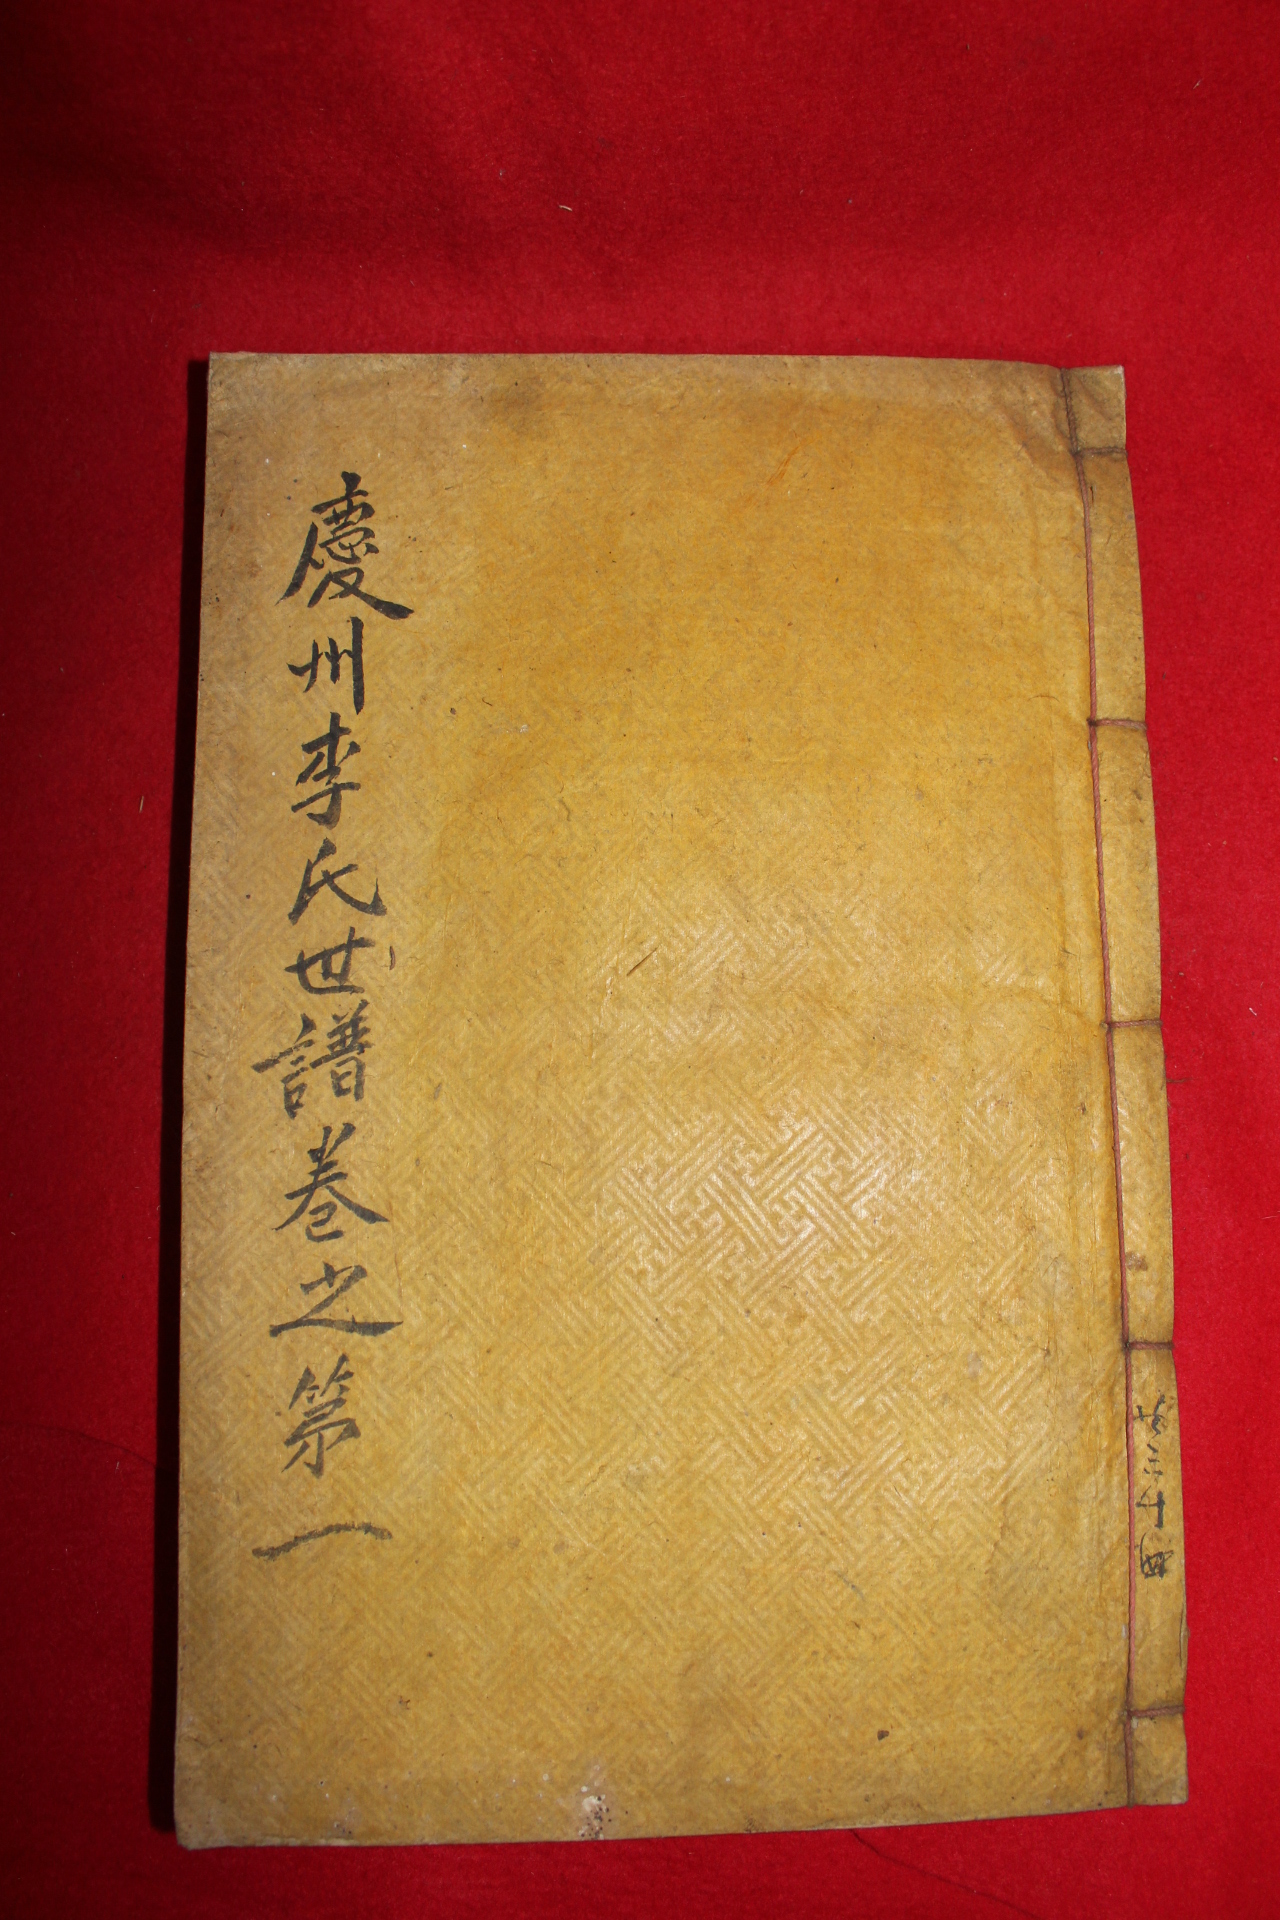 慶州李氏世譜卷之第一
共三十冊